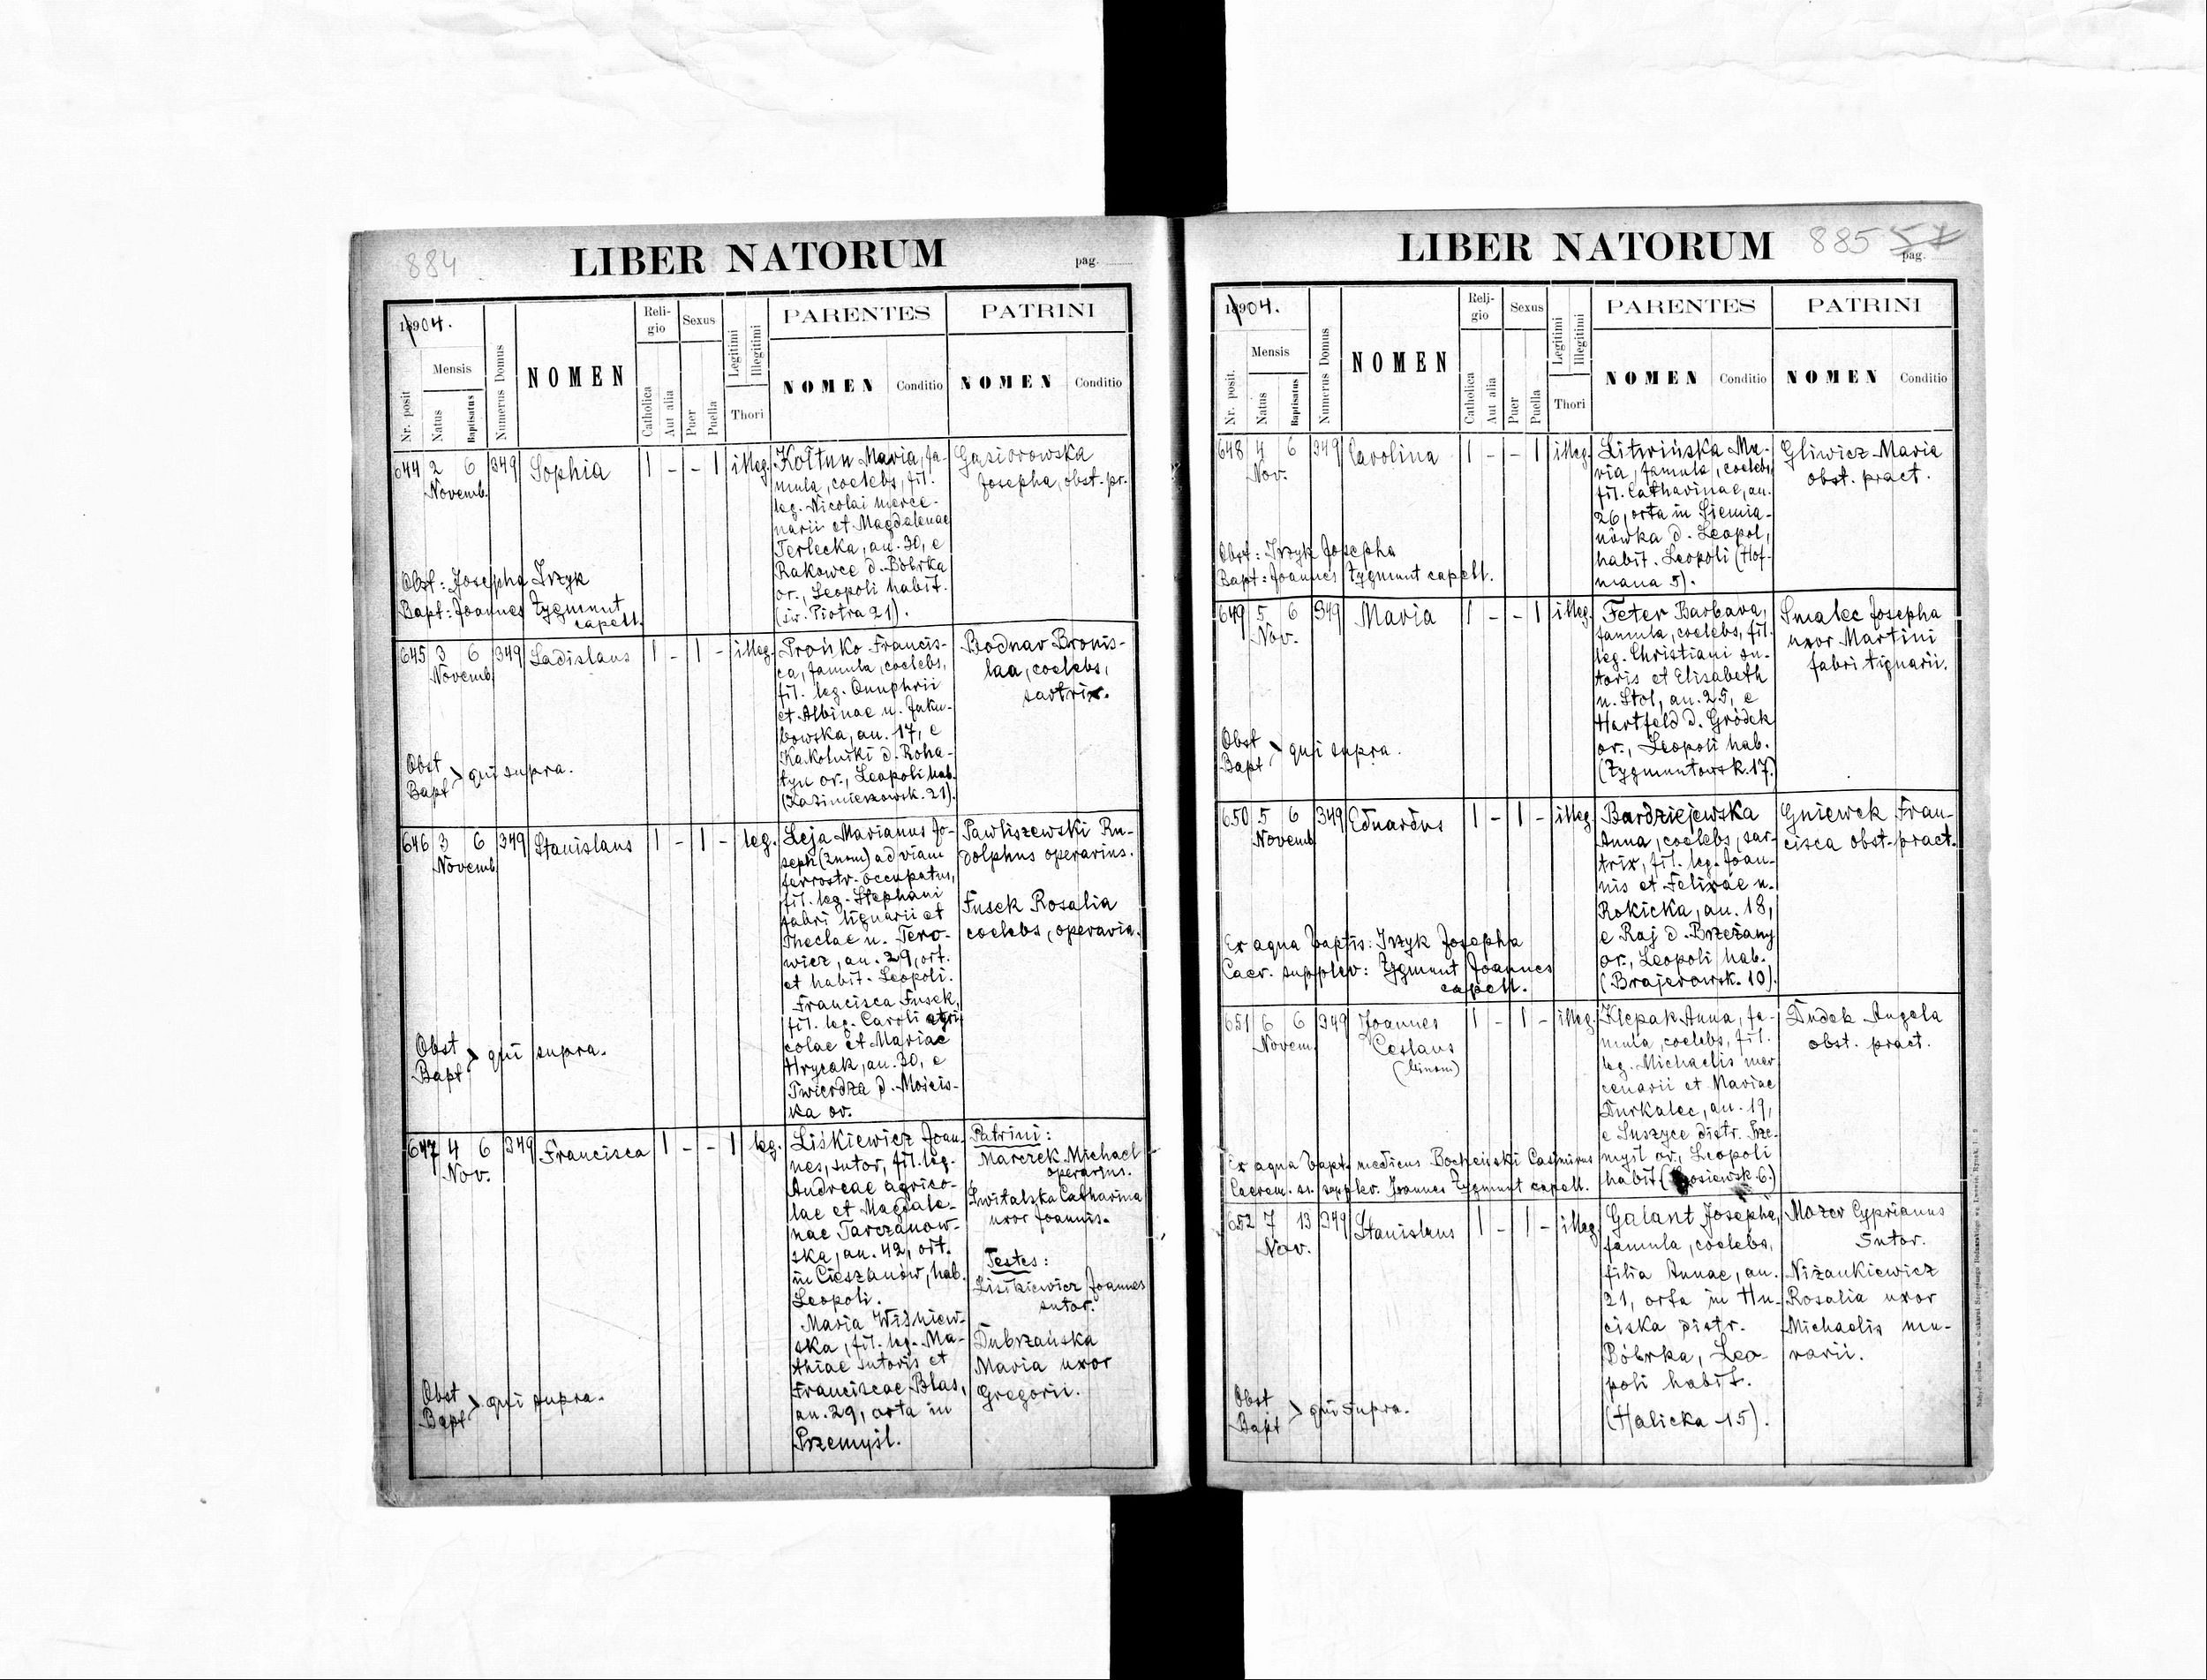 884
LIBER NATORUM
pag.
1904.
Nr. posit
Mensis
Natus
Baptisatus
Numerus Domus
NOMEN
Religio
Catholica
Aut alia
Sexus
Puer
Puella
Legitimi
Illegitimi
Thori
PARENTES
NOMEN
Conditio
PATRINI
NOMEN
Conditio
644 2 6 349 Sophia 1 - - 1 illeg.
Novemb.
Kołtun Maria, fa-
mula, coelebs, fil.
leg. Nicolai merce-
narii et Magdalenae
Terlecka, an. 30, e
Rakowce d. Bóbrka
or., Leopoli habit.
(św. Piotra 21).
Gąsiorowska
Josepha, obst. pr.
Obst: Josepha Irzyk
Bapt: Joannes Zygmunt
capell.
645 3 6 349 Ladislaus 1 - 1 - illeg.
Novemb.
Prońko Francis-
ca, famula, coelebs,
fil. leg. Onuphrii
et Albinae n. Jaku-
bowska, an. 17, e
Kąkolniki d. Roha-
tyn or., Leopoli hab.
(Kazimierzowsk. 21).
Bodnar Bronis-
laa, coelebs,
sartrix.
Obst
Bapt > qui supra.
646 3 6 349 Stanislaus 1 - 1 - leg.
Novemb.
Leja Marianus Jo-
seph (2nom) ad viam
ferrostr. occupatus,
fil. leg. Stephani
fabri lignarii et
Theclae n. Tero-
wicz, an. 29, ort.
et habit. Leopoli.
Francisca Fusek,
fil. leg. Caroli agri
colae et Mariae
Hrycak, an. 30, e
Twierdza d. Mościs-
ka or.
Pawliszewski Ru-
dolphus operarius.
Fusek Rosalia
coelebs, operaria.
Obst
Bapt > qui supra.
647 4 6 349 Francisca 1 - - 1 leg.
Nov.
Liśkiewicz Joan-
nes, sutor, fil. leg.
Andreae agrico-
lae et Magdale-
nae Tarczanow-
ska, an. 42, ort.
in Cieszanów, hab.
Leopoli.
Maria Wiśniew-
ska, fil. leg. Ma-
thiae sutoris et
Franciscae Blas,
an. 29, orta in
Przemyśl.
Patrini:
Marczek Michael
operarius.
Świtalska Catharina
uxor Joannis.
Testes:
Lisikiewicz Joannes
sutor.
Dubrzańska
Maria uxor
Gregorii.
Obst
Bapt > qui supra.
LIBER NATORUM
885
pag.
1904.
Nr. posit.
Mensis
Natus
Baptisatus
Numerus Domus
NOMEN
Religio
Catholica
Aut alia
Sexus
Puer
Puella
Legitimi
Illegitimi
Thori
PARENTES
NOMEN
Conditio
PATRINI
NOMEN
Conditio
648 4 6 349 Carolina 1 - - 1 illeg.
Nov.
Litwińska Ma-
ria, famula, coelebs,
fil. Catharinae, an.
26, orta in Siemia-
nówka d. Leopol,
habit. Leopoli (Hof-
mana 5).
Gliwicz Maria
obst. pract.
Obst: Irzyk Josepha
Bapt: Joannes Zygmunt capell.
649 5 6 349 Maria 1 - - 1 illeg.
Nov.
Feter Barbara,
famula, coelebs, fil.
leg. Christiani su-
toris et Elisabeth
n. Stol, an. 25, e
Hartfeld d. Gródek
or., Leopoli hab.
(Zygmuntowsk. 17.)
Smalec Josepha
uxor Martini
fabri lignarii.
Obst
Bapt > qui supra.
650 5 6 349 Eduardus 1 - 1 - illeg.
Novemb.
Bardziejewska
Anna, coelebs, sar-
trix, fil. leg. Joan-
nis et Felixae n.
Rokicka, an. 18,
e Raj d. Brzeżany
or., Leopoli hab.
(Brajerowsk. 10).
Gniewek Fran-
cisca obst. pract.
Ex aqua baptis: Irzyk Josepha
Caer. supplev: Zygmunt Joannes
capell.
651 6 6 349 Joannes 1 - 1 - illeg.
Novem.
Ceslaus
(binom)
Klepak Anna, fa-
mula, coelebs, fil.
leg. Michaelis mer
cenarii et Mariae
Durkalec, an. 19,
e Suszyce distr. Prze-
myśl or., Leopoli
habit
Dudek Angela
obst. pract.
Ex aqua bapt. medicus Casimirus
Caerem. supplev. Joannes Zygmunt capell.
652 7 13 349 Stanislaus 1 - 1 - illeg.
Nov.
Galant Josepha,
famula, coelebs,
filia Annae, an.
21, orta in Hu-
ciska distr.
Bóbrka, Leo-
poli habit.
(Halicka 15).
Mozer Cyprianus
Sutor.
Niżankiewicz
Rosalia uxor
Michaelis mu-
rarii.
Obst
Bapt > qui supra.